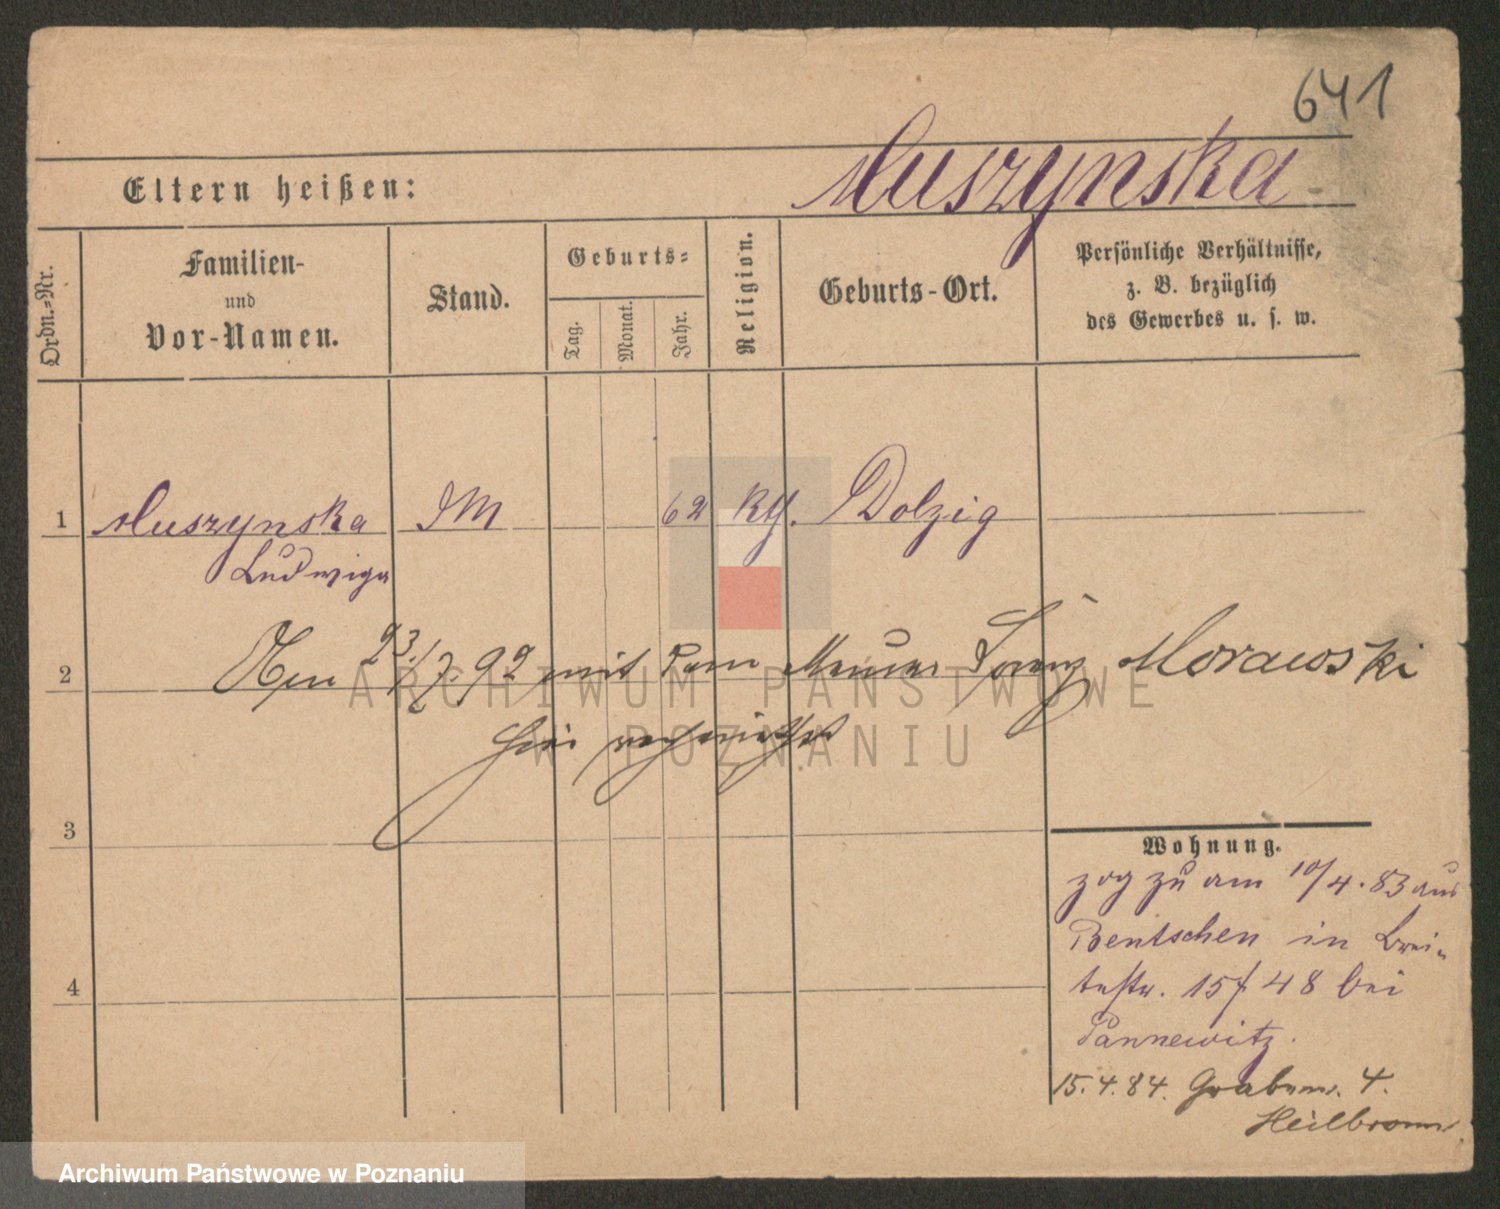 641
Eltern heißen:
Muszynska
Ordn.=Nr.
Familien-
und
Vor-Namen.
Stand.
Geburts=
Tag.
Monat.
Jahr.
Religion.
Geburts-Ort.
Persönliche Verhältnisse,
z. B. bezüglich
des Gewerbes u. s. w.
1 Muszynska DM 62 kth. Dolzig
Ludwiga
2 23./7. 92 mit dem Maurer Lorenz Morawski
hier verheirathet
ARCHIWUM PAŃSTWOWE
W POZNANIU
3
Wohnung.
zog zu am 10/4. 83 aus
Bentschen in Brei-
testr. 15 48 bei
4
Pannewitz.
15.4.84. Grabenstr. 4.
Heilbronn.
Archiwum Państwowe w Poznaniu